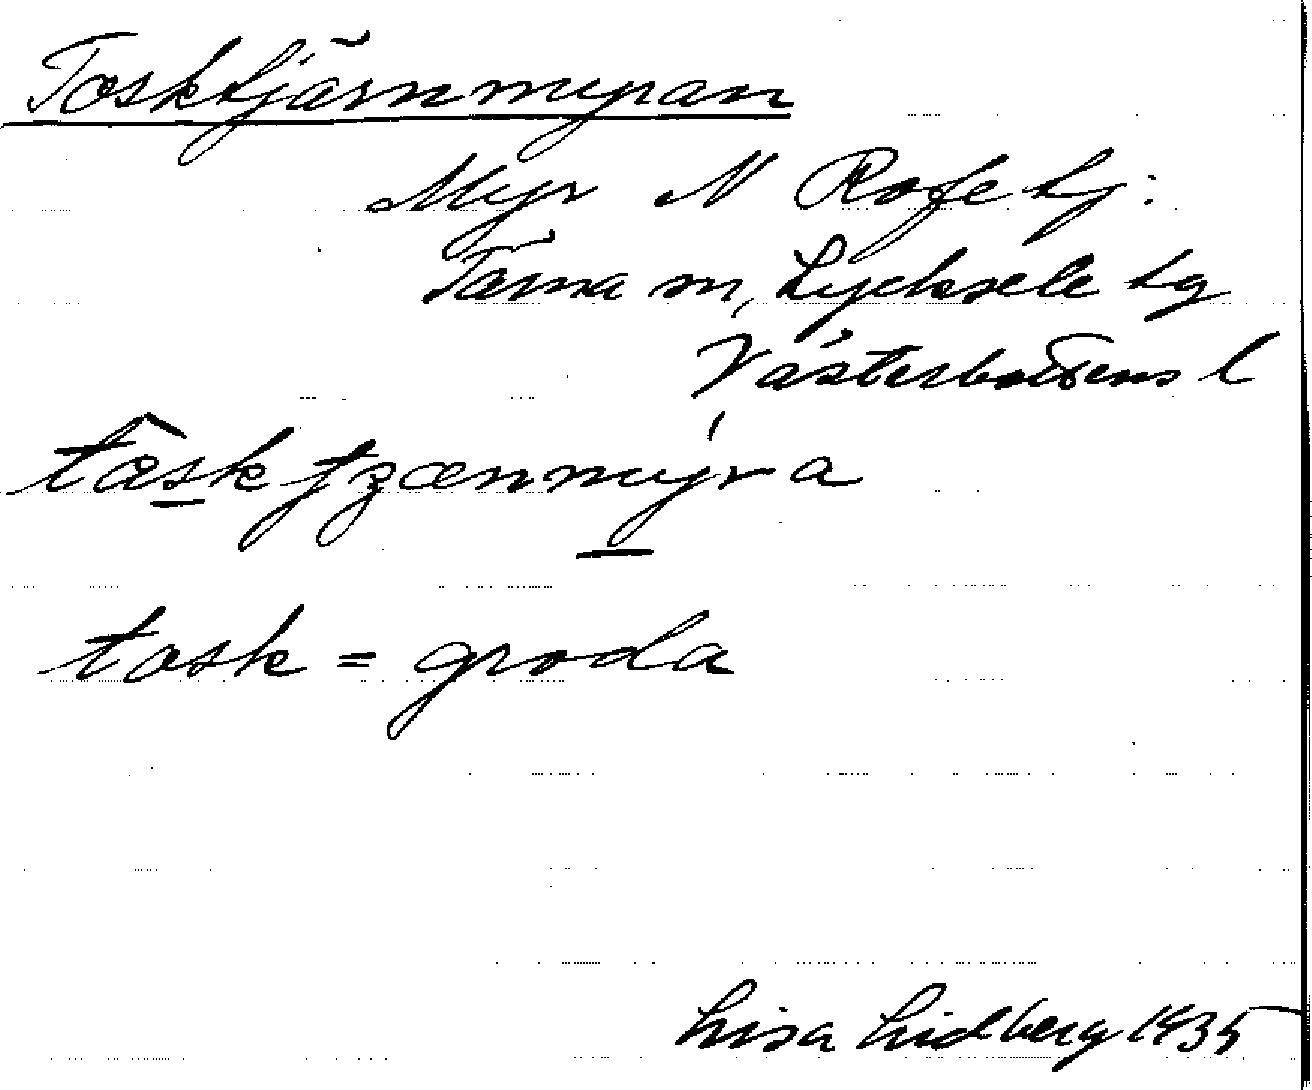 Tosktjärnmyran
Myr N Rofe tj:
Tärna sn, Lycksele lg
Västerbottens l
task = groda
Lisa Lidberg 1935